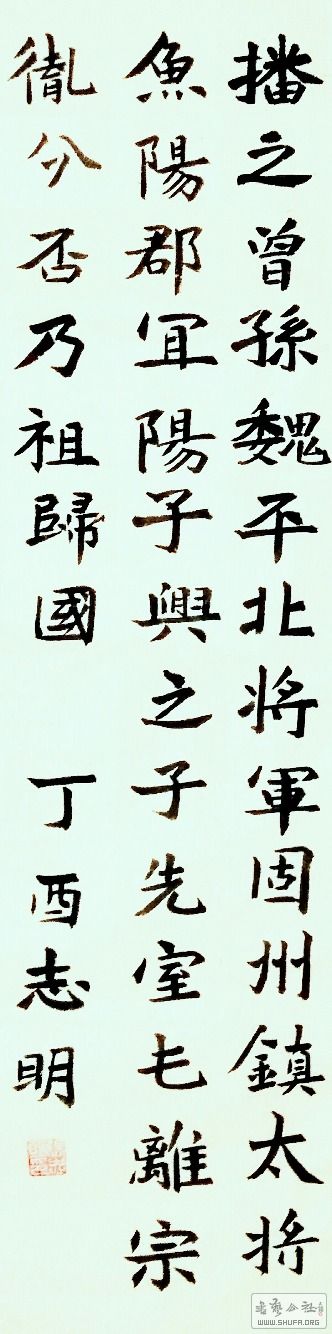 播之曾孫魏平北將軍固州鎮太將
魚陽郡宜陽子興之子先室乇離宗
胤分否乃祖歸國
丁酉志明
WWW.SHUFA.ORG